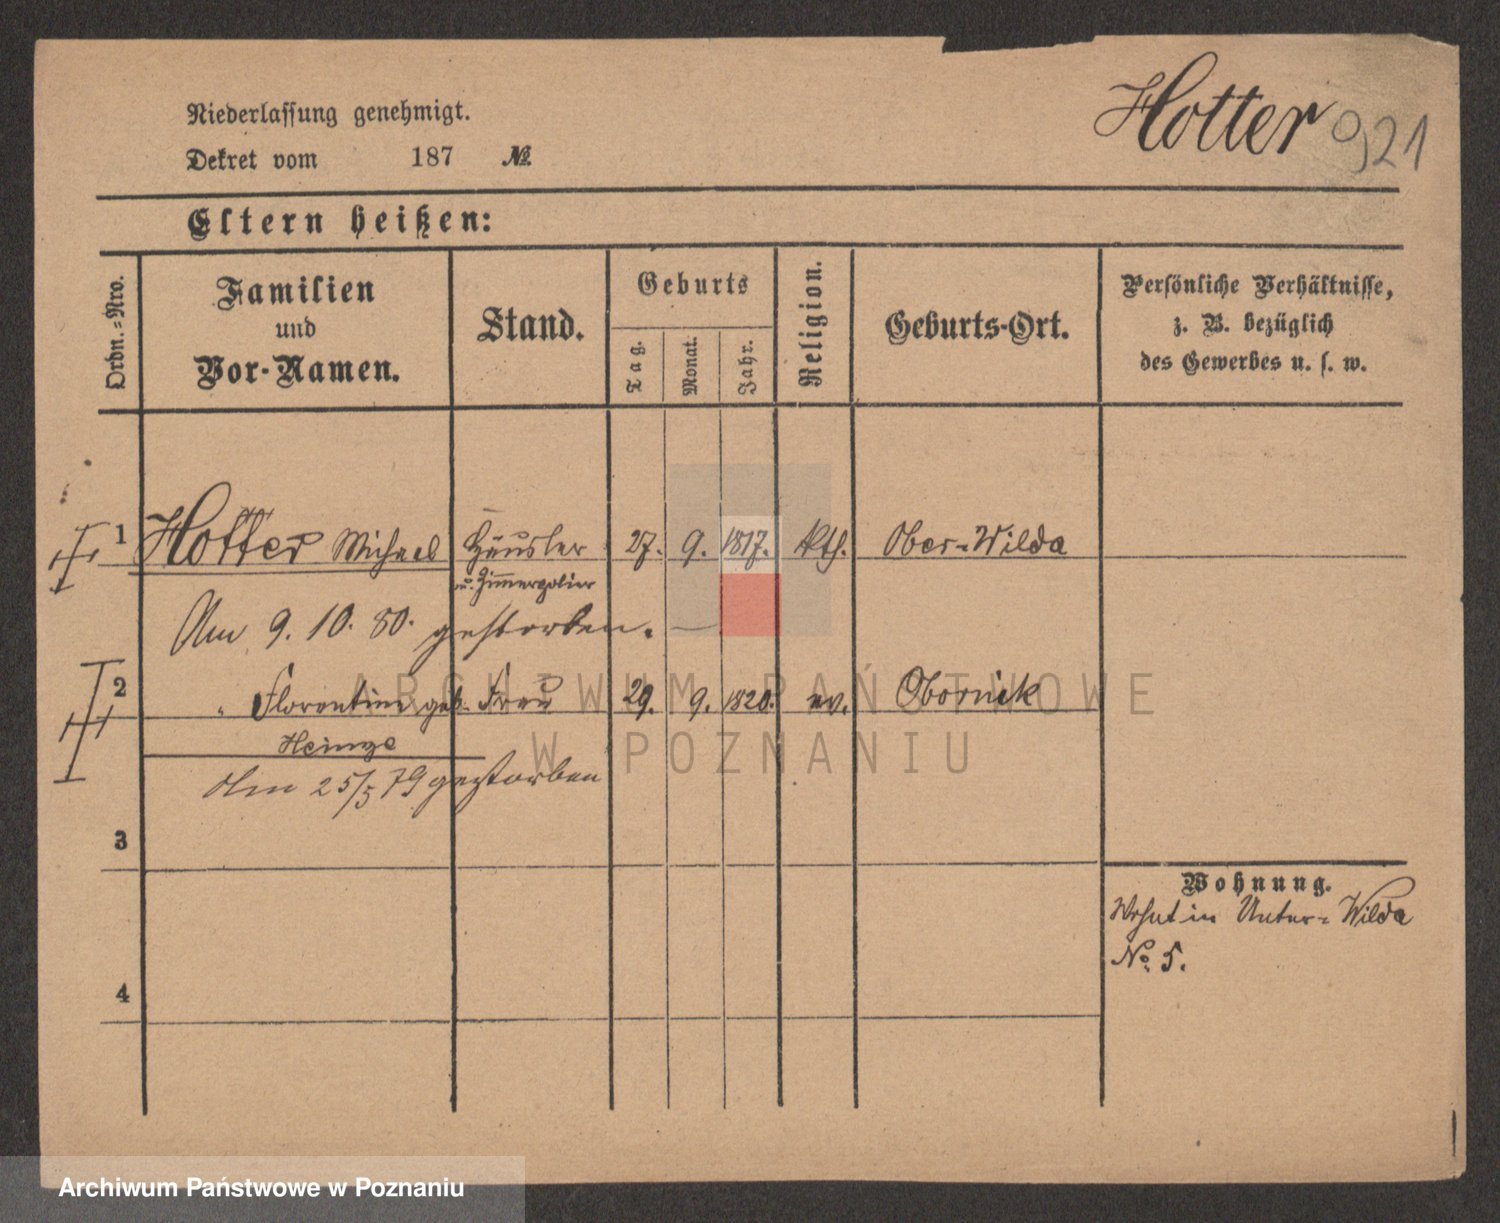 Hotter 921
Niederlassung genehmigt.
Dekret vom 187 №
Eltern heißen:
Ordn.=Nro.
Familien
und
Vor-Namen.
Stand.
Geburts
Tag.
Monat.
Jahr.
Religion.
Geburts-Ort.
Persönliche Verhältnisse,
z. B. bezüglich
des Gewerbes u. s. w.
1 Hotter Michael Häusler 27. 9. 1817. kth. Ober=Wilda
u. Zimmerpolier
Am 9. 10. 80. gestorben.
2 Florentine geb. Frau 29. 9. 1820. ev. Obornik
Heinze
Am 25/5 79 gestorben
3
Wohnung.
Wohnt in Unter=Wilda
No. 5.
4
ARCHIWUM PAŃSTWOWE
W POZNANIU
Archiwum Państwowe w Poznaniu